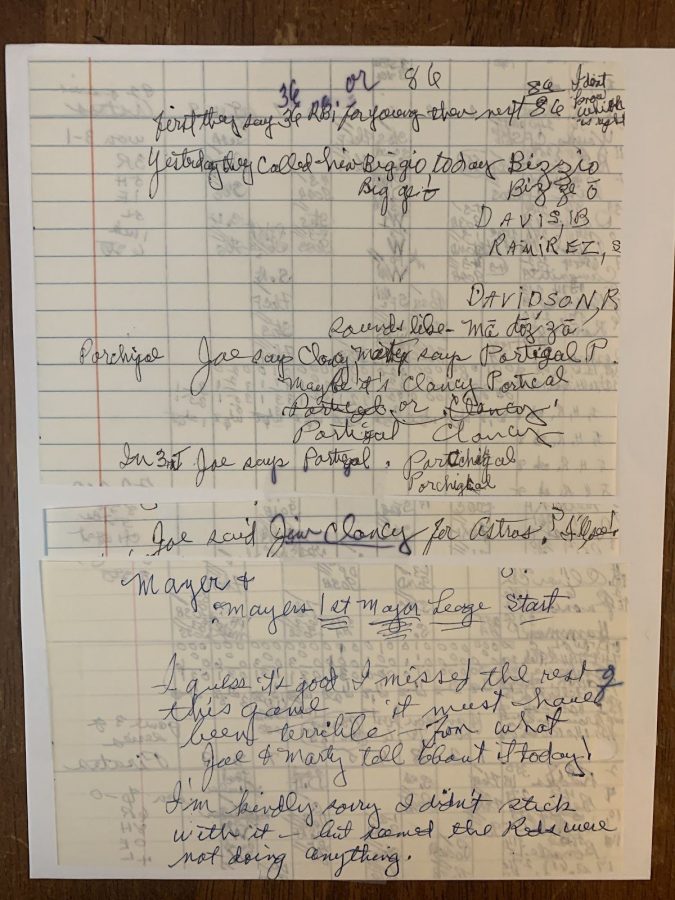 36 or 86
first they say 36 RBI for young then next 86
86
I dont
know
which
is right
Yesterday they called him Biggio, today Bizzio
Big ge ō Biz ze ō
DAVIS, 1B
RAMIREZ, S
DAVIDSON, R
sounds like - Mā dōz zā
Porchigal Joe say Clancy, Marty says Portigal P.
maybe it's Clancy Portcal
Portigal or Clancy
Portigal Clancy
In 3rd Joe says Portigal. Portchigal
Porchigal
Joe said Jim Clancy for Astros,
Mayer +
Mayers 1st Major Leage Start
I guess it's good I missed the rest of
this game - it must have
been terrible - from what
Joe & Marty tell about it today!
I'm kindly sorry I didn't stick
with it - but seemed the Reds were
not doing anything.